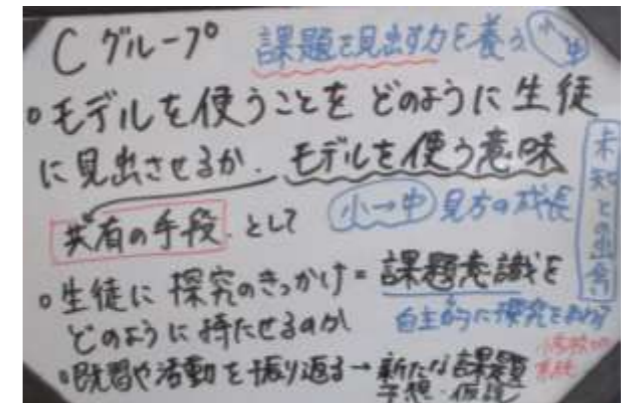 Cグループ 課題を見出す力を養う 小 中
○モデルを使うことを どのように生徒
に見出させるか. モデルを使う意味
共有の手段. として 小→中 見方の成長
未知との出会
○生徒に 探究のきっかけ=課題意識を
どのように持たせるのか 自主的に探究を
○既習や活動を振り返る→新たな課題
予想・仮説